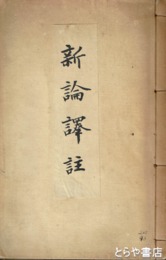 新論譯註
とらや書店